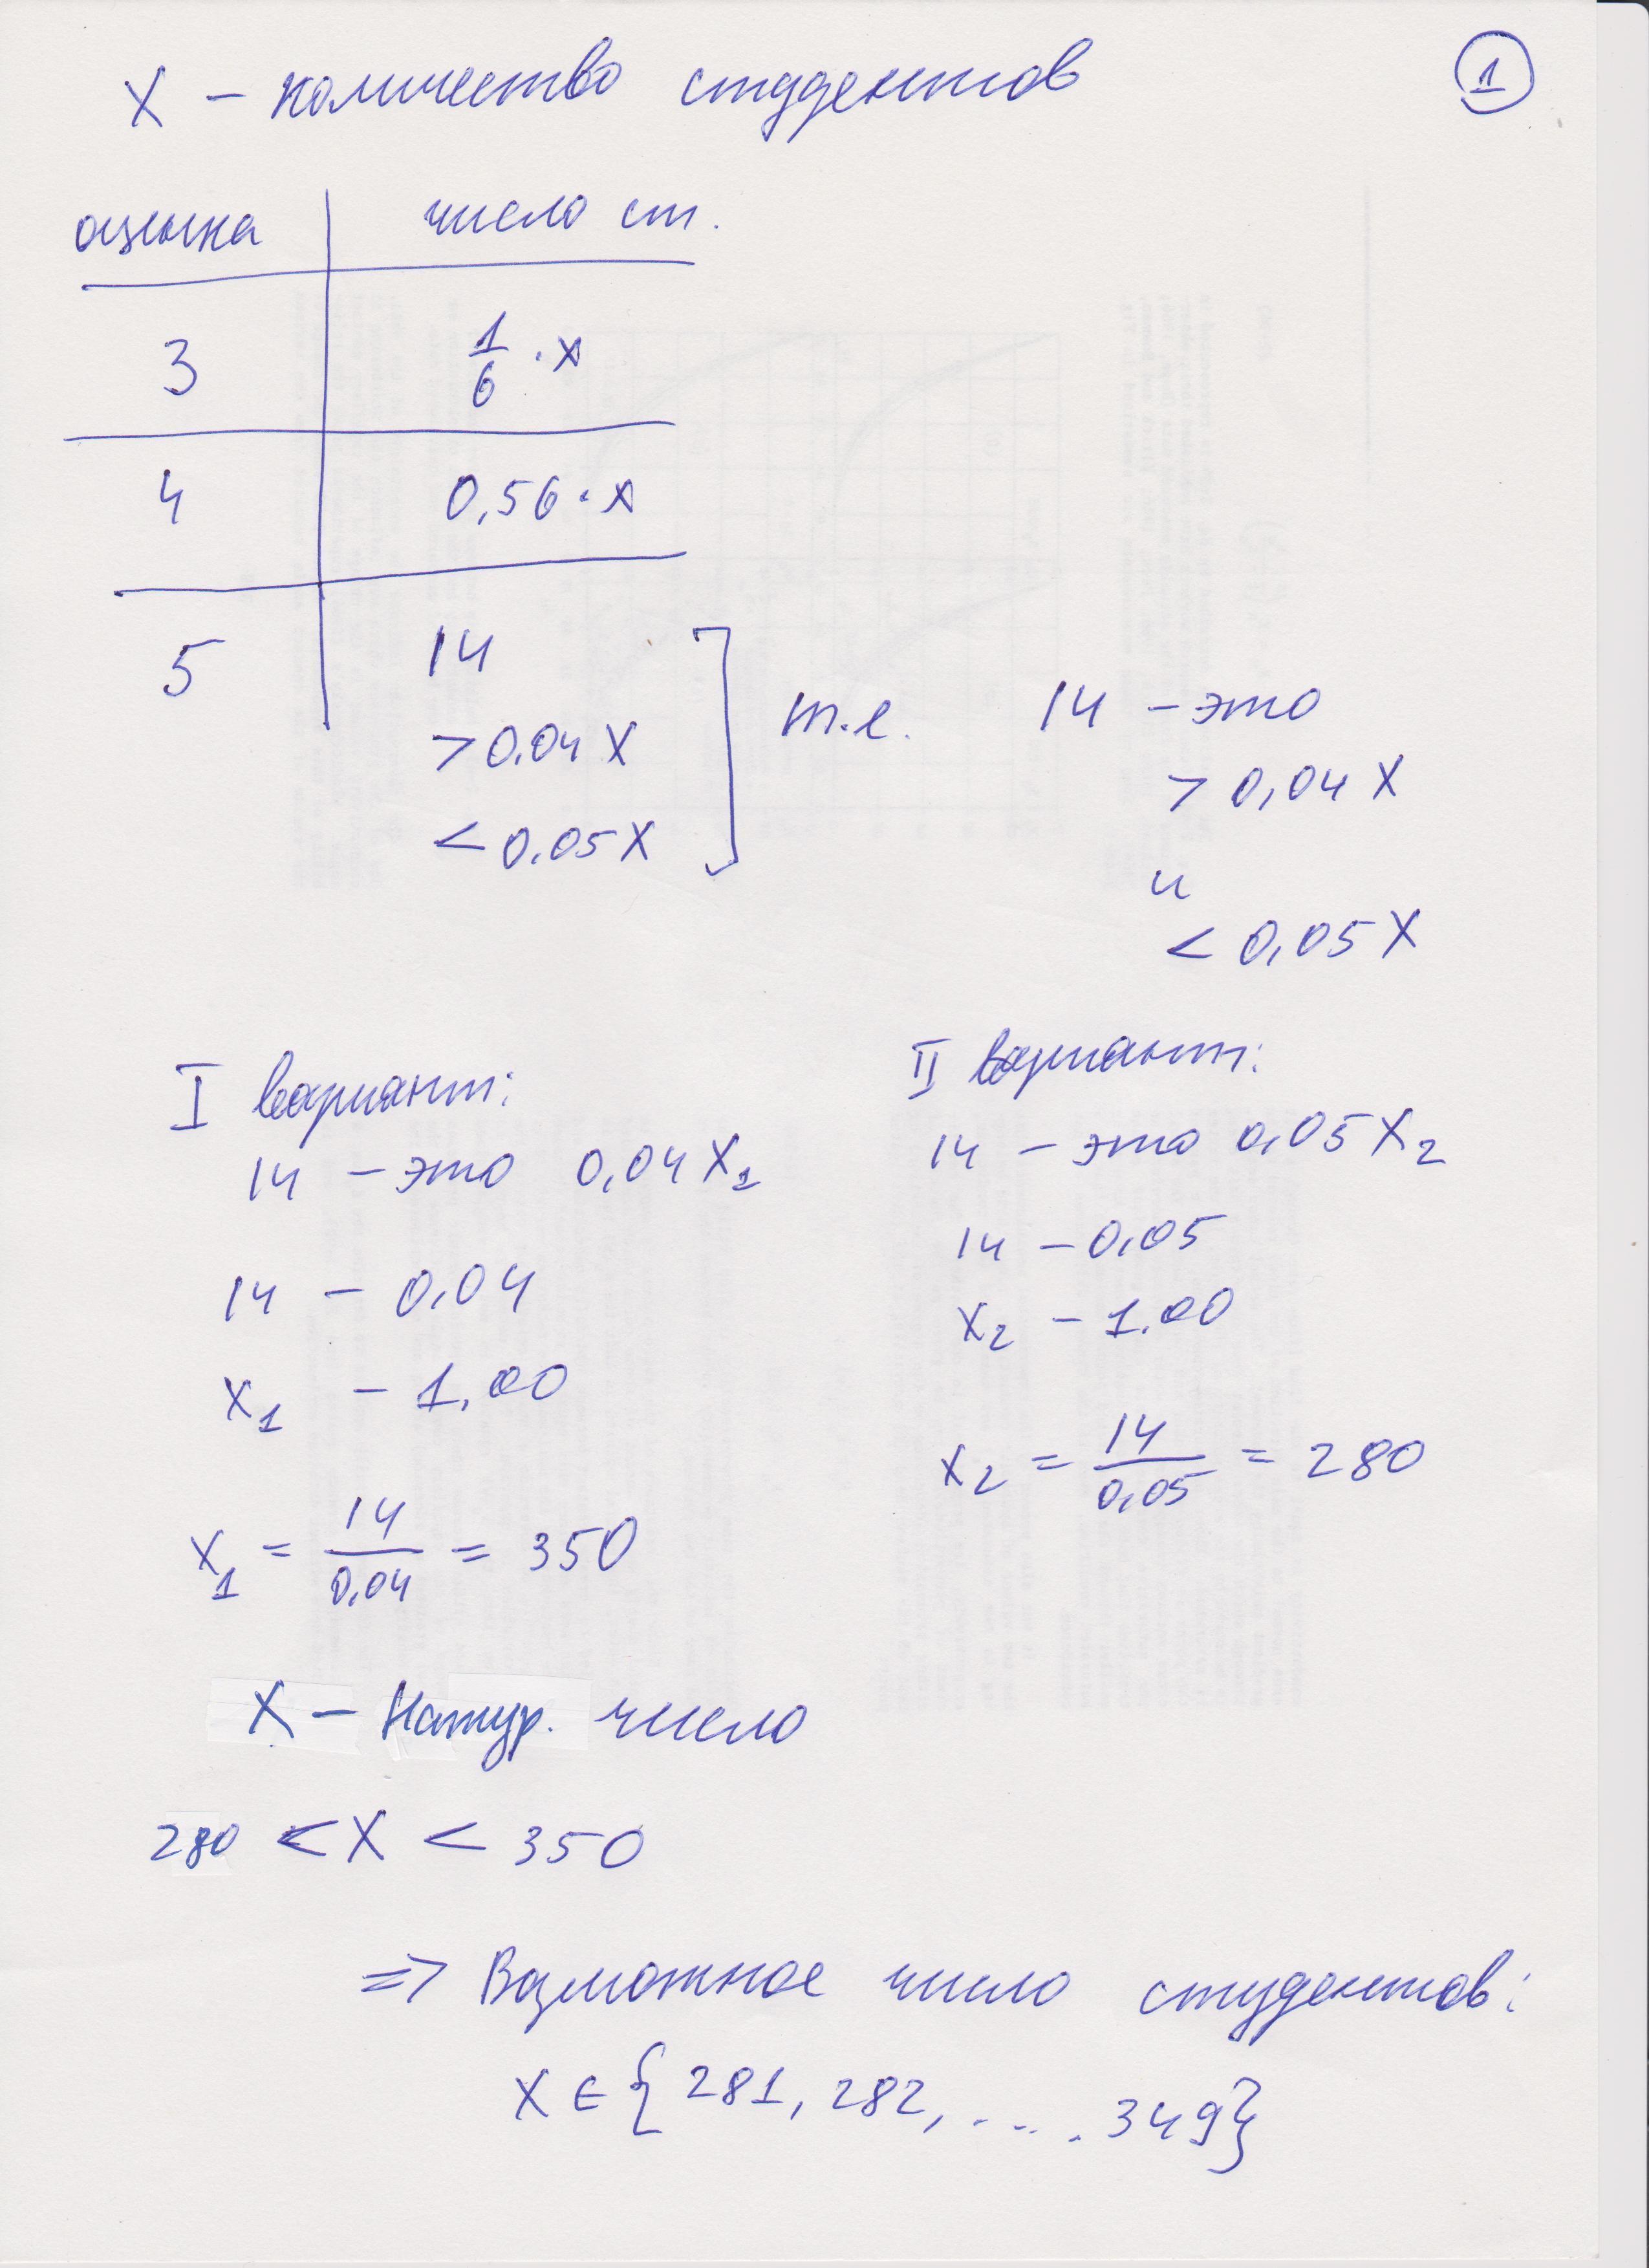 X – количество студентов
1
оценка число ст.
3 1/6 · x
4 0,56 · x
5 14
> 0.04 X
< 0.05 X
т.е. 14 – это
> 0,04 X
и
< 0,05 X
I вариант:
14 – это 0,04 X₁
14 – 0,04
X₁ – 1,00
X₁ = 14/0,04 = 350
II вариант:
14 – это 0,05 X₂
14 – 0,05
X₂ – 1,00
X₂ = 14/0,05 = 280
X – Натур. число
280 < X < 350
=> Возможное число студентов:
X ∈ {281, 282, .... 349}